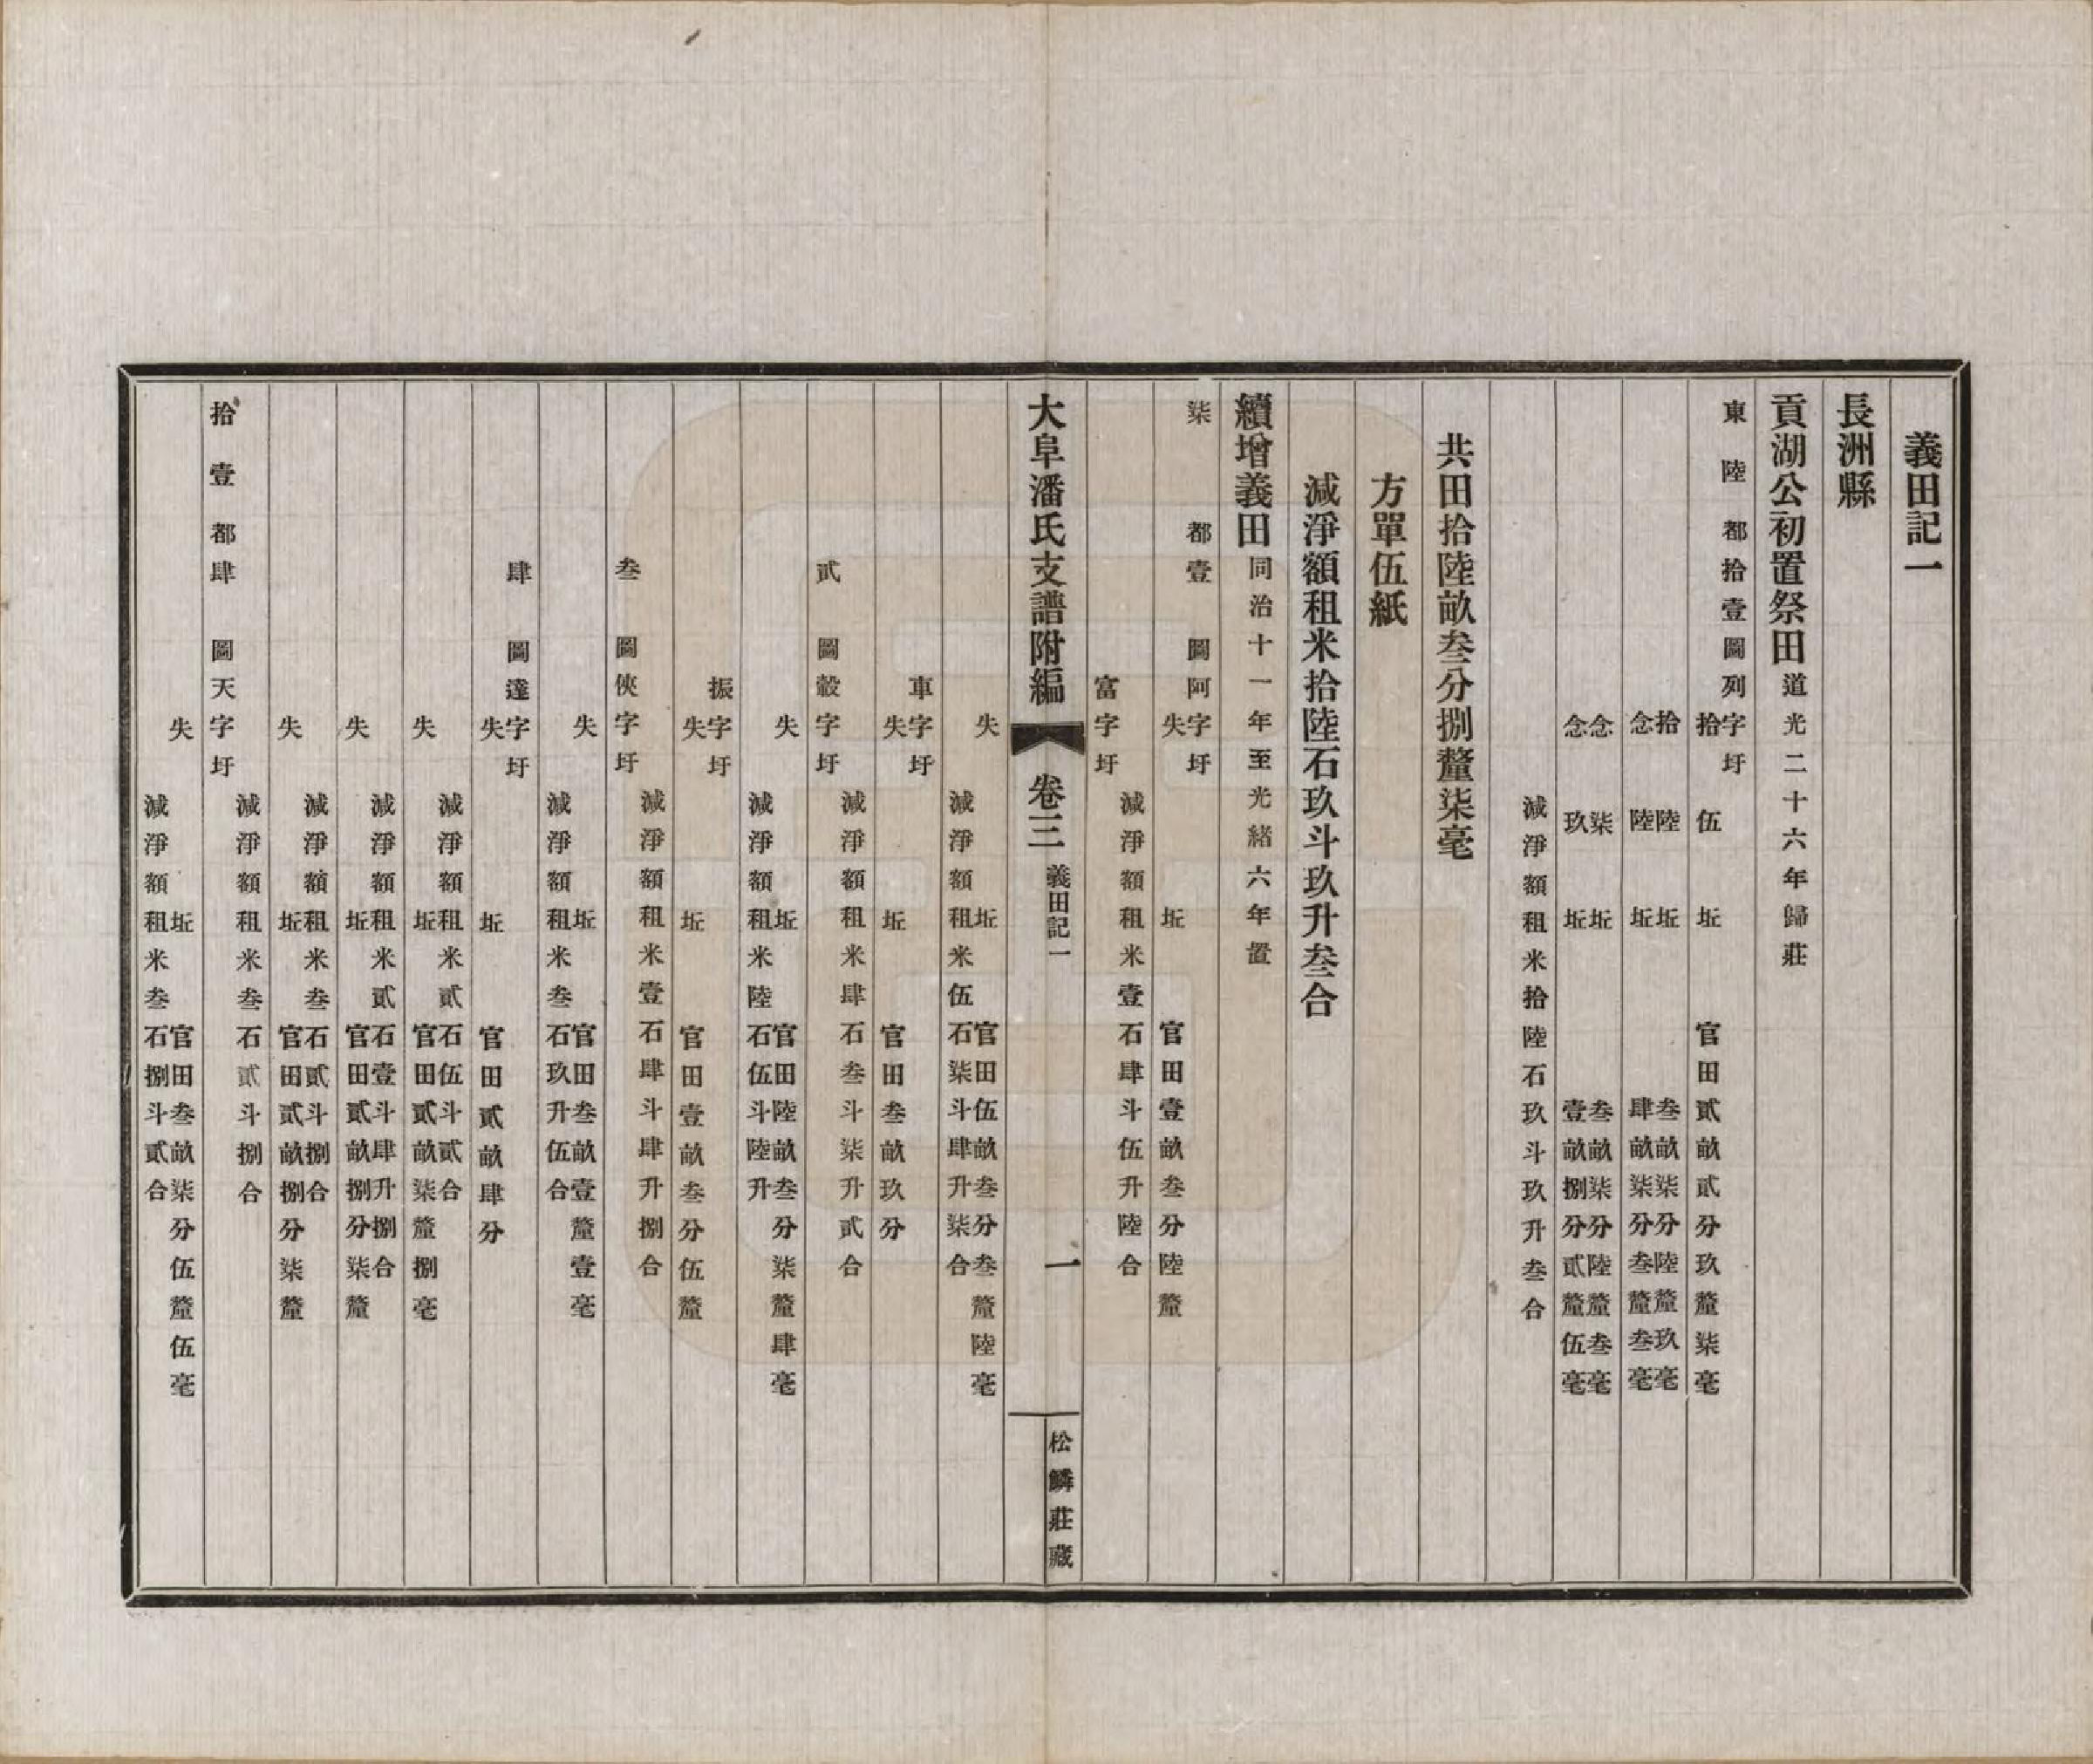 義田記一
長洲縣
貢湖公初置祭田道光二十六年歸莊
東陸都拾壹圖列字圩
拾伍坵官田貳畝貳分玖釐柒毫
拾陸坵叁畝柒分陸釐玖毫
念陸坵肆畝柒分叁釐叁毫
念柒坵叁畝柒分陸釐叁毫
念玖坵壹畝捌分貳釐伍毫
減淨額租米拾陸石玖斗玖升叁合
共田拾陸畝叁分捌釐柒毫
方單伍紙
減淨額租米拾陸石玖斗玖升叁合
續增義田同治十一年至光緒六年置
柒都壹圖阿字圩
失坵官田壹畝叁分陸釐
減淨額租米壹石肆斗伍升陸合
富字圩
大阜潘氏支譜附編
卷三
義田記一
一
松鱗莊藏
失坵官田伍畝叁分叁釐陸毫
減淨額租米伍石柒斗肆升柒合
車字圩
失坵官田叁畝玖分
減淨額租米肆石叁斗柒升貳合
貳圖轂字圩
失坵官田陸畝叁分柒釐肆毫
減淨額租米陸石伍斗陸升
振字圩
失坵官田壹畝叁分伍釐
減淨額租米壹石肆斗肆升捌合
叁圖俠字圩
失坵官田叁畝壹釐壹毫
減淨額租米叁石玖升伍合
肆圖達字圩
失坵官田貳畝肆分
減淨額租米貳石伍斗貳合
失坵官田貳畝柒釐捌毫
減淨額租米貳石壹斗肆升捌合
失坵官田貳畝捌分柒釐
減淨額租米叁石貳斗捌合
失坵官田貳畝捌分柒釐
減淨額租米叁石貳斗捌合
拾壹都肆圖天字圩
失坵官田叁畝柒分伍釐伍毫
減淨額租米叁石捌斗貳合